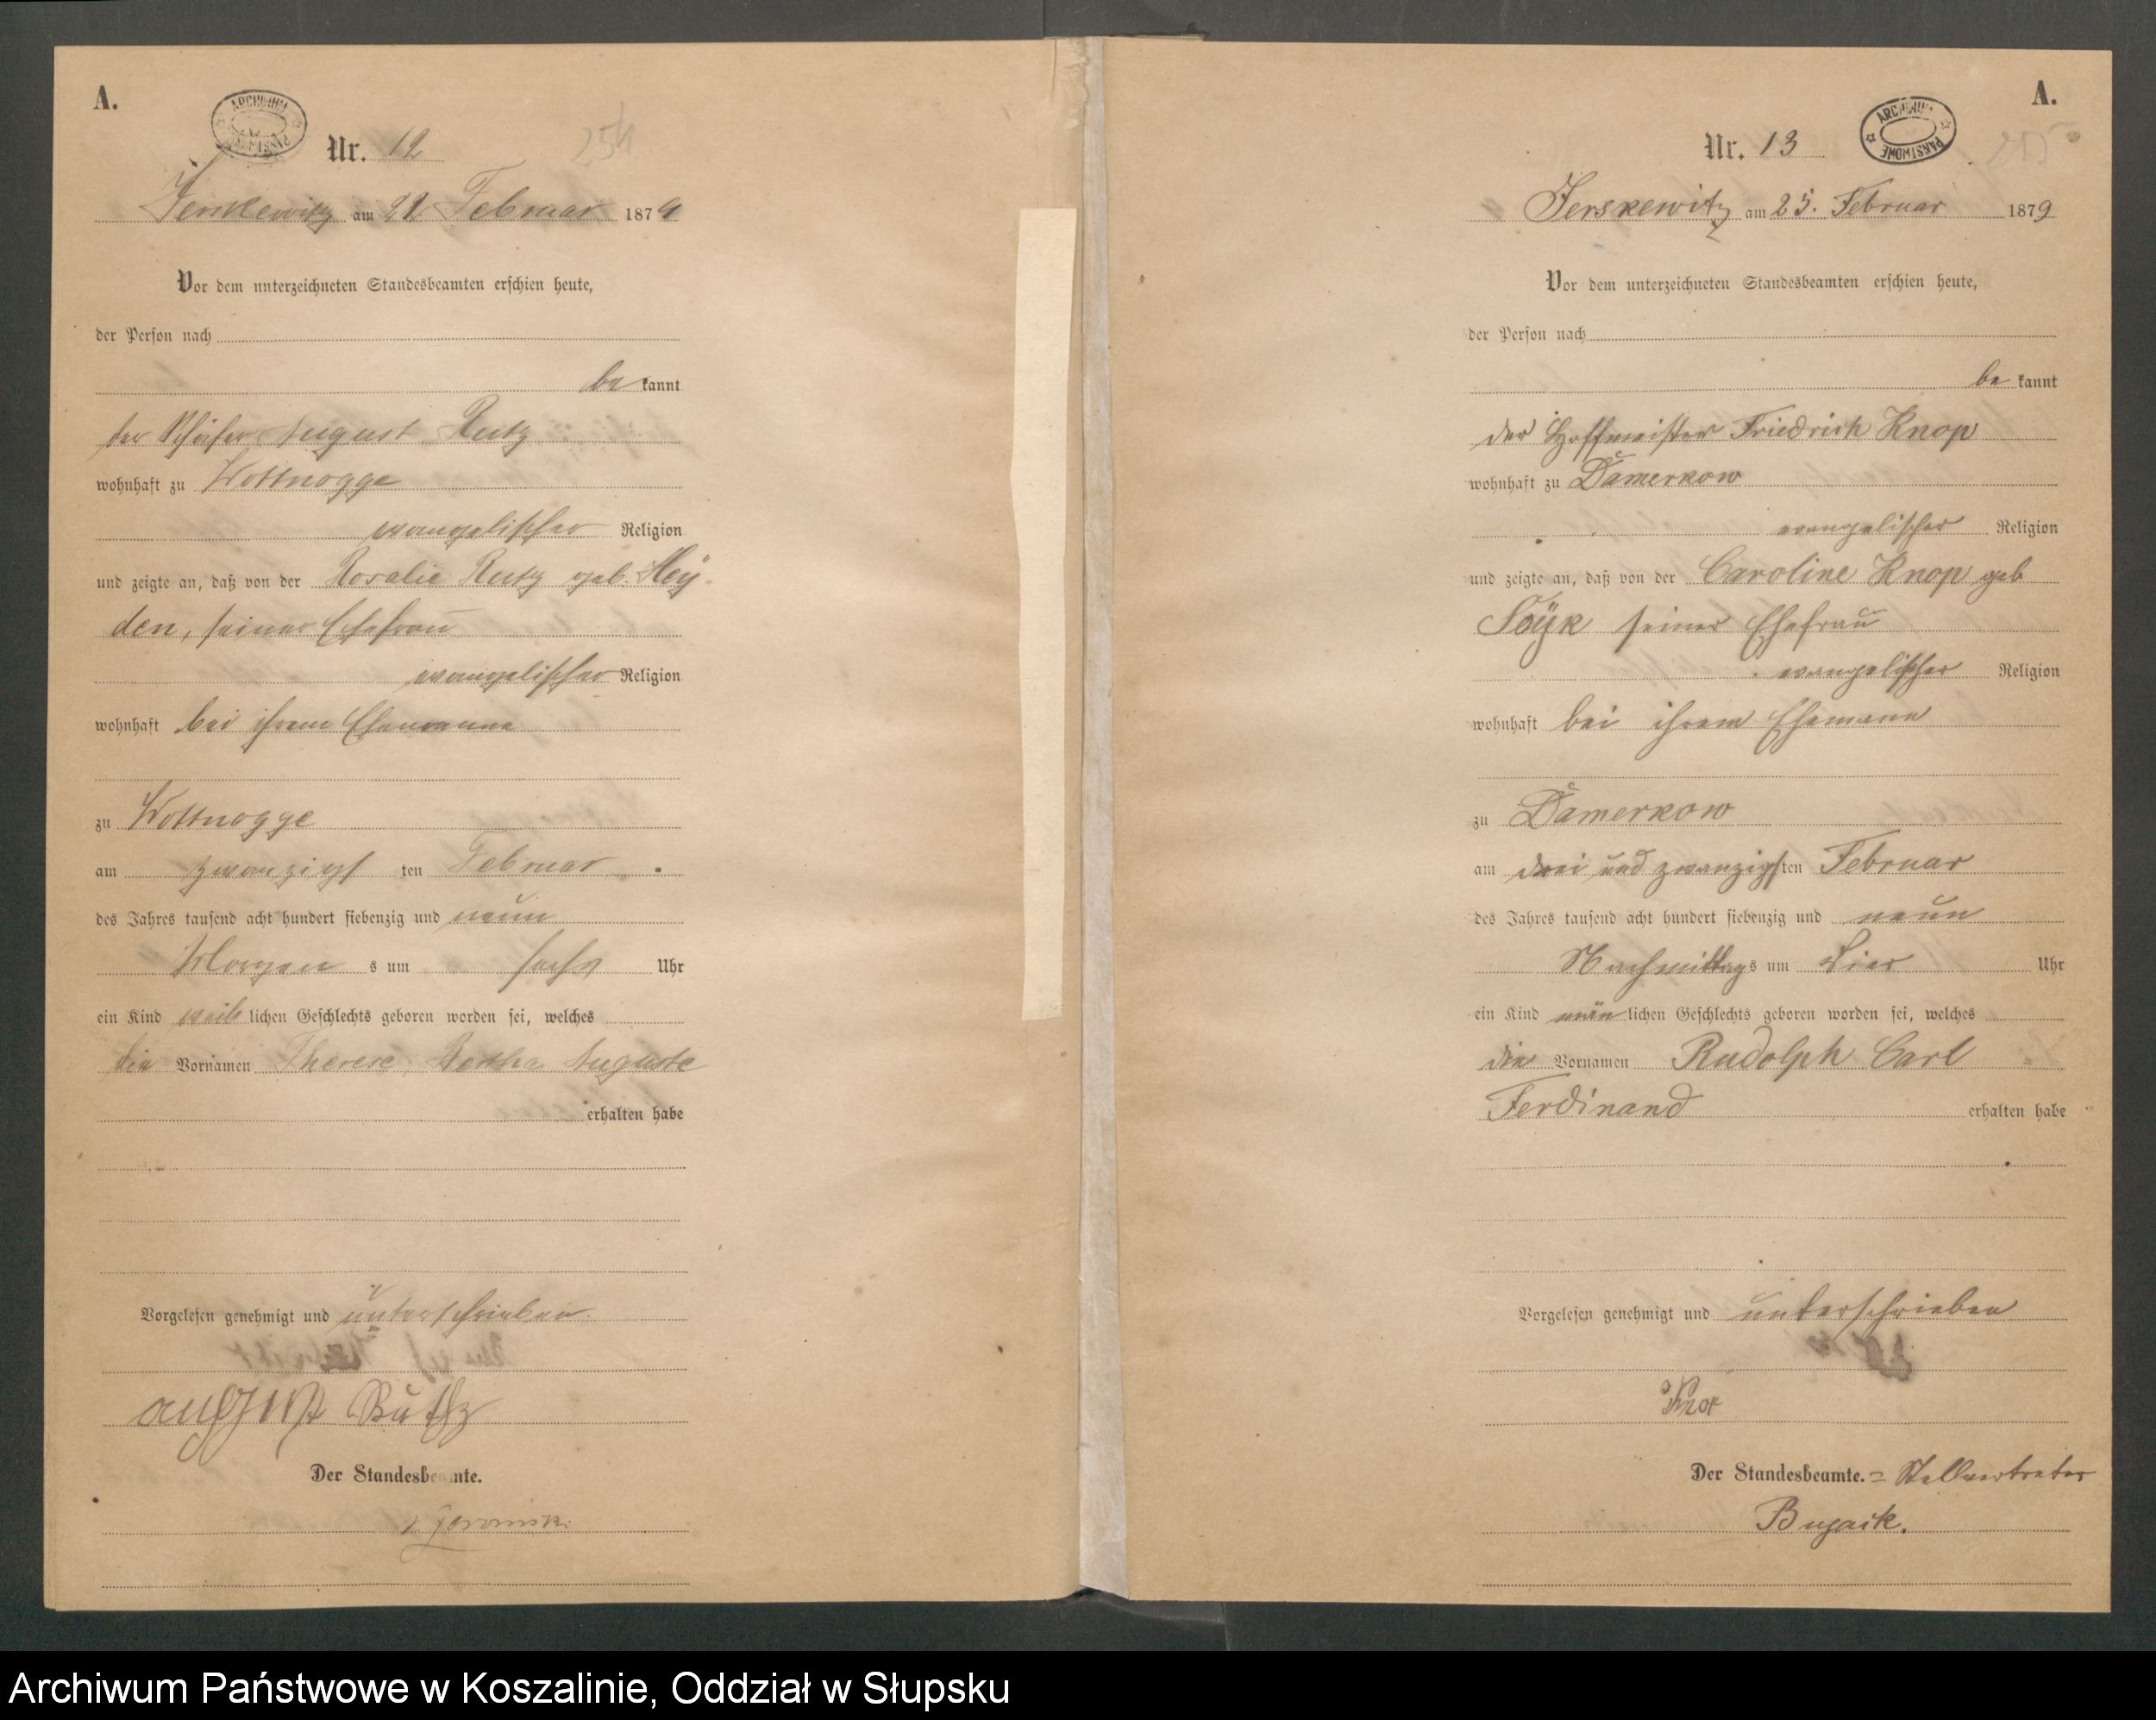 A.
ARCHIWUM PAŃSTWOWE
Nr. 12
254
Jerskewitz am 21 Februar 1879
Vor dem unterzeichneten Standesbeamten erschien heute,
der Person nach
be kannt
der Schäfer August Rutz
wohnhaft zu Wottnogge
evangelischer Religion
und zeigte an, daß von der Rosalie Rutz geb. Hey-
den, seiner Ehefrau
evangelischer Religion
wohnhaft bei ihrem Ehemanne
zu Wottnogge
am zwanzigs ten Februar
des Jahres tausend acht hundert siebenzig und neun
Morgen s um sechs Uhr
ein Kind weib lichen Geschlechts geboren worden sei, welches
die Vornamen Therese, Bertha Auguste
erhalten habe
Vorgelesen genehmigt und unterschrieben
august Rutz
Der Standesbeamte.
A.
Nr. 13
ARCHIWUM PAŃSTWOWE
255
Jerskewitz am 25. Februar 1879
Vor dem unterzeichneten Standesbeamten erschien heute,
der Person nach
be kannt
der Hoffmeister Friedrich Knop
wohnhaft zu Damerkow
evangelischer Religion
und zeigte an, daß von der Caroline Knop geb
Soÿk seiner Ehefrau
evangelischer Religion
wohnhaft bei ihrem Ehemann
zu Damerkow
am drei und zwanzigsten Februar
des Jahres tausend acht hundert siebenzig und neun
Nachmittags um Vier Uhr
ein Kind män lichen Geschlechts geboren worden sei, welches
die Vornamen Rudolph Carl
Ferdinand erhalten habe
Vorgelesen genehmigt und unterschrieben
Knop
Der Standesbeamte. = Stellvertreter
Bugaik.
Archiwum Państwowe w Koszalinie, Oddział w Słupsku